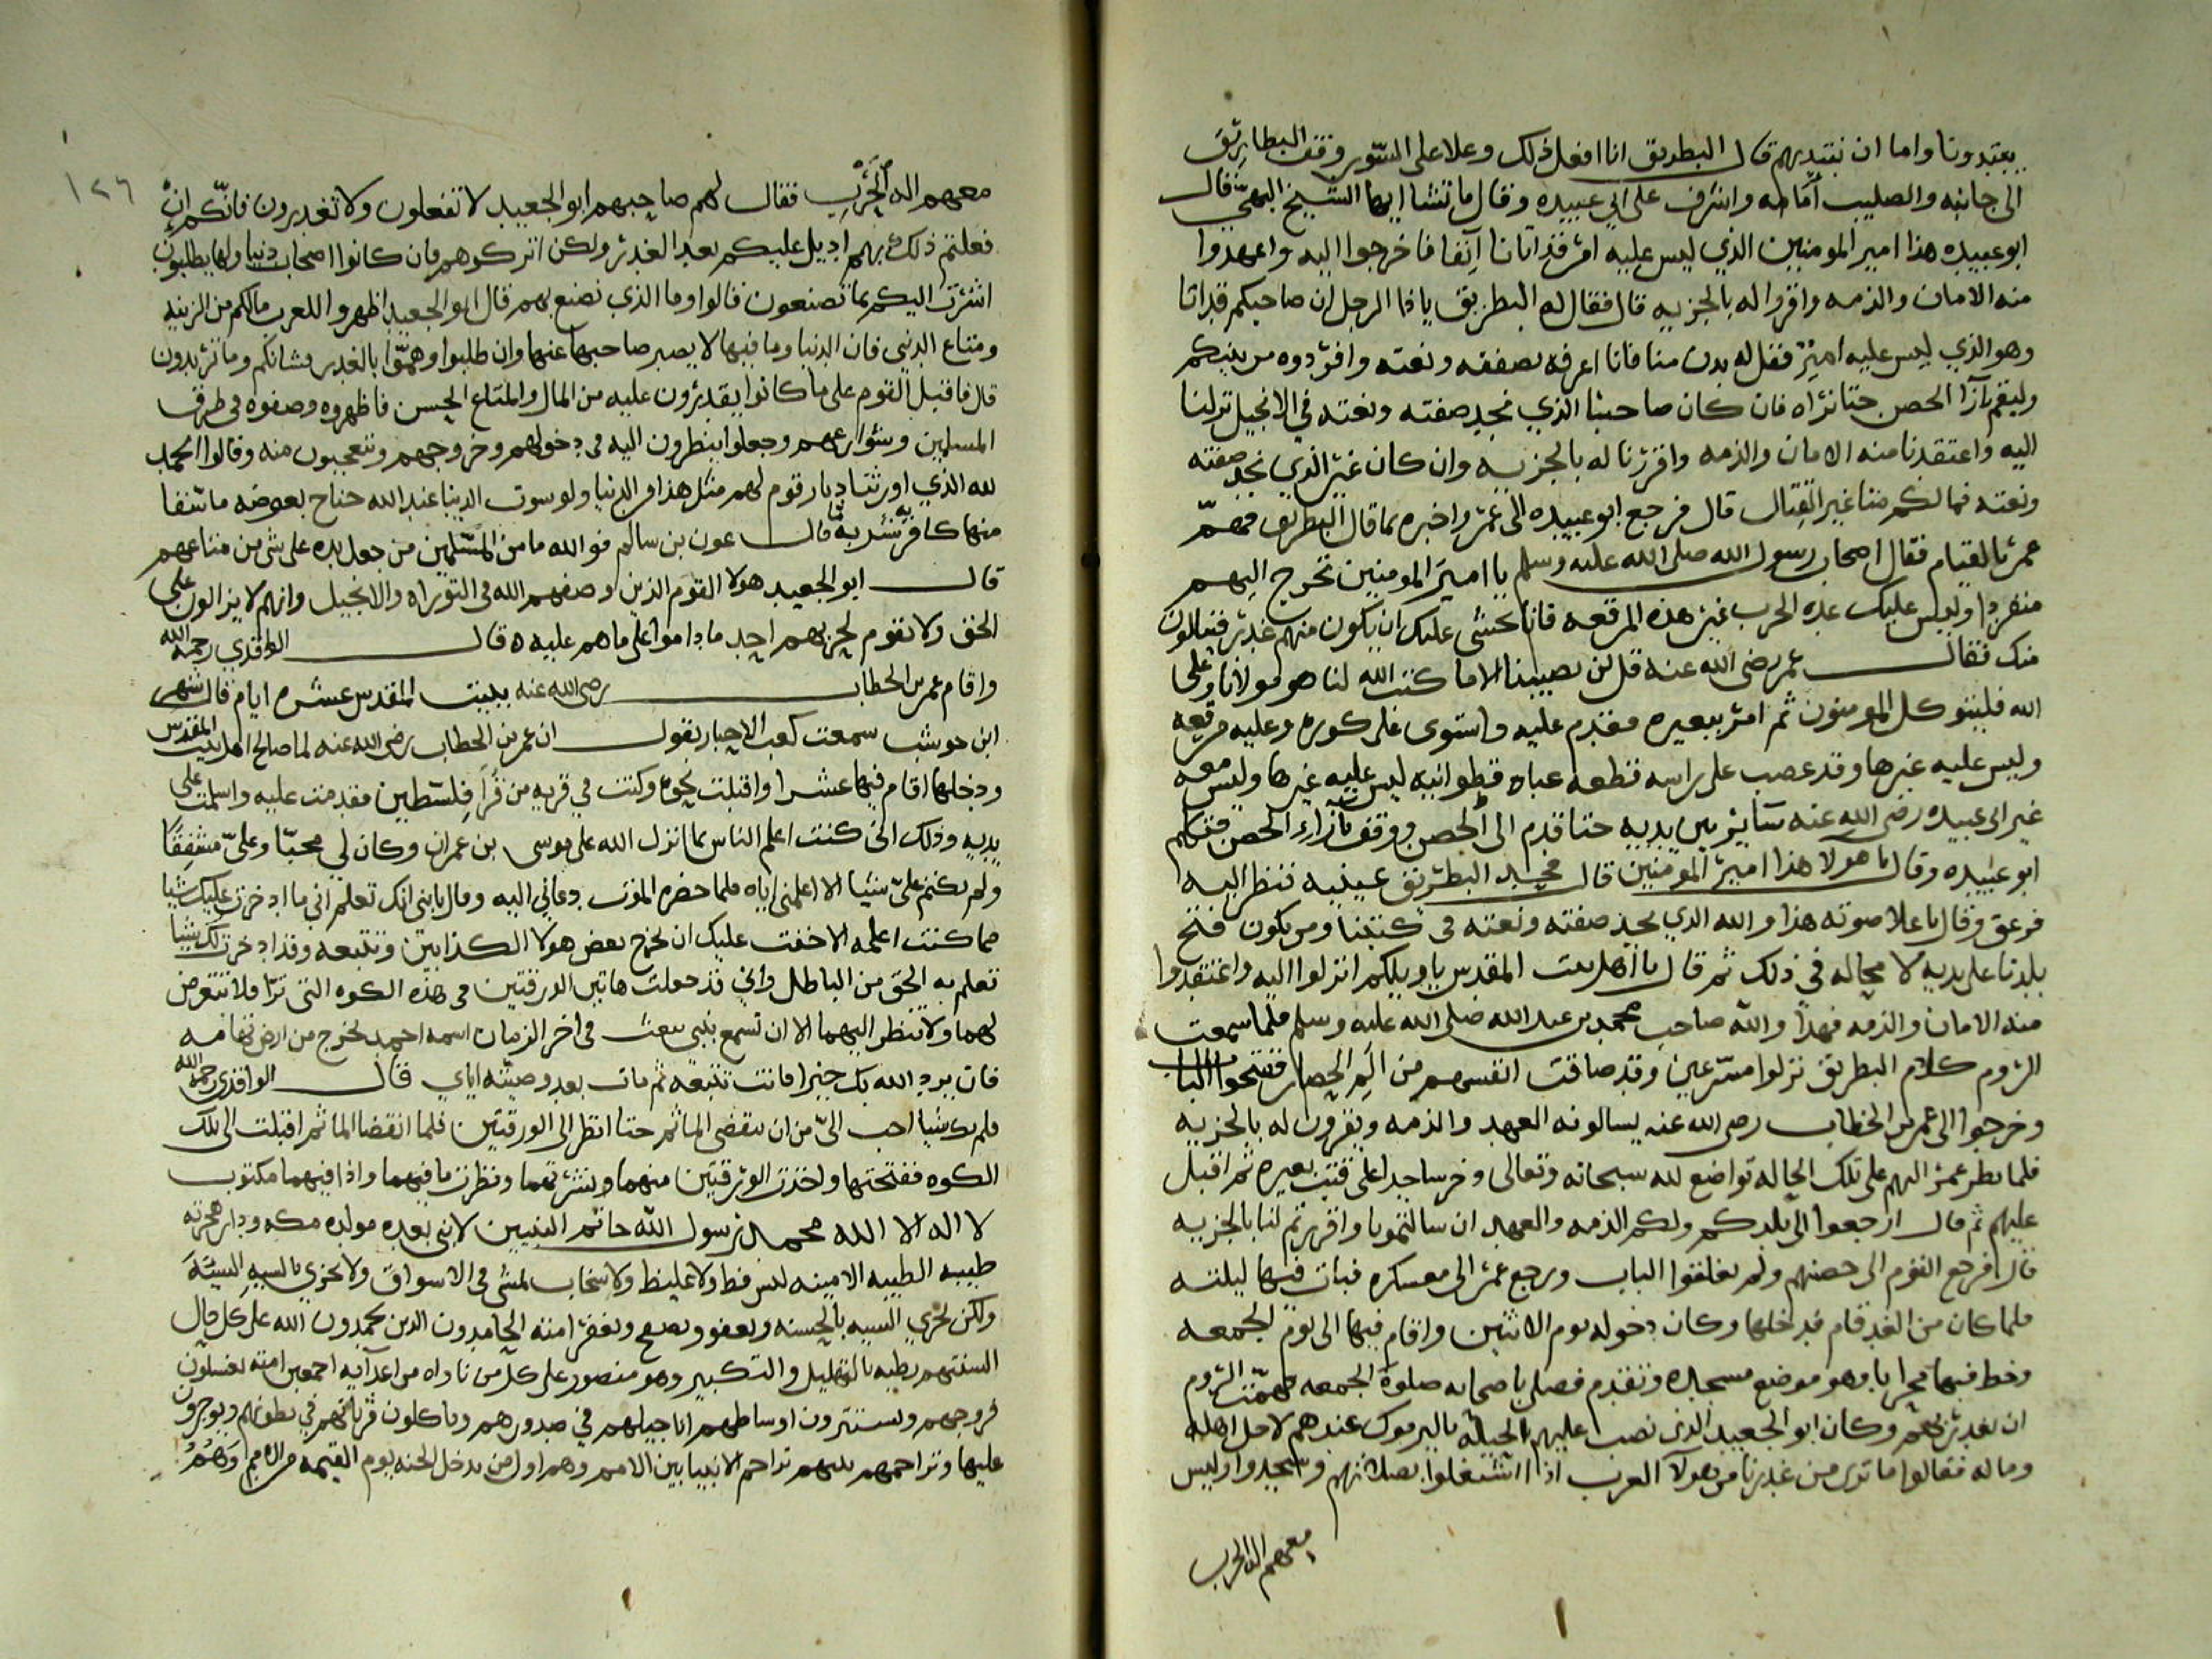 يبتدونا واما ان نبتديهم قال البطريق انا افعل ذلك وعلا على السور وقف البطاريق
الى جانبه والصليب أمامه واشرف على ابي عبيده وقال ما تشا ايها الشيخ البهي قال
ابو عبيده هذا امير المومنين الذي ليس عليه امير قد اتانا آنفا فاخرجوا اليه واعهدوا
منه الامان والذمه واقروا له بالجزيه قال فقال له البطريق يا ذا الرجل ان صاحبكم قد اتا
وهو الذي ليس عليه امير فقل له يدن منا فانا اعرفه بصفته ونعته وافردوه من بينكم
وليقم بآزا الحصن حتا نراه فان كان صاحبنا الذي نجد صفته ونعته في الانجيل نزلنا
اليه واعتقدنا منه الامان والذمه واقررنا له بالجزيه وان كان غير الذي نجد صفته
ونعته فما لكم منا غير القتال قال فرجع ابو عبيده الى عمر واخبره بما قال البطريق فهمّ
عمر بالقيام فقال اصحاب رسول الله صلى الله عليه وسلم يا امير المومنين تخرج اليهم
منفردا وليس عليك عده الحرب غير هذه المرقعه فانا نخشى عليك ان يكون منهم غدر فينالون
منك فقال عمر رضى الله عنه قل لن يصيبنا الا ما كتب الله لنا هو مولانا وعلى
الله فليتوكل المومنون ثم امر ببعيره فقدم عليه واستوى على كوره وعليه مرقعه
وليس عليه غيرها وقد عصب على راسه قطعه عباه قطوانيه ليس عليه غيرها وليس معه
غير ابى عبيده رضى الله عنه ساير بين يديه حتا قدم الى الحصن ووقف بآزاء الحصن فتكلم
ابو عبيده وقال يا هولا هذا امير المومنين قال فمد البطريق عينيه فنظر اليه
فزعق وقال باعلا صوته هذا والله الذي نجد صفته ونعته فى كتبنا ومن يكون فتح
بلدنا على يديه لا محاله في ذلك ثم قال يا أهل بيت المقدس يا ويلكم انزلوا اليه واعتقدوا
منه الامان والذمه فهذا والله صاحب محمد بن عبد الله صلى الله عليه وسلم فلما سمعت
الروم كلام البطريق نزلوا مسرعين وقد ضاقت انفسهم من الم الحصار ففتحوا الباب
وخرجوا الى عمر بن الخطاب رضى الله عنه يسالونه العهد والذمه ويقرون له بالجزيه
فلما نظر عمر اليهم على تلك الحاله تواضع لله سبحانه وتعالى وخر ساجدا على قتب بعيره ثم اقبل
عليهم ثم قال ارجعوا الى بلدكم ولكم الذمه والعهد ان سالتمونا واقررتم لنا بالجزيه
قال فرجع القوم الى حصنهم ولم يغلقوا الباب ورجع عمر الى معسكره فبات فيها ليلته
فلما كان من الغد قام فدخلها وكان دخوله يوم الاثنين واقام فيها الى يوم الجمعه
وخط فيها محرابا وهو موضع مسجده وتقدم فصلى باصحابه صلوة الجمعه فهمّت الروم
ان يغدر بهم وكان ابو الجعيد الذى نصب عليهم الحيلة باليرموك عندهم لاجل اهله
وماله فقالوا ما ترى من غدرنا من هولآ العرب اذا اشتغلوا بصلاتهم وسجدوا وليس
معهم اله الحرب
١٢٦
معهم اله الحَرْبِ فقال لهم صاحبهم ابو الجعيد لا تفعلون ولا تغدرون فانّكم ان
فعلتم ذلك بهم اديل عليكم بعد الغدر ولكن اتركوهم فان كانوا اصحاب دنيا ولها يطلبون
اشرت اليكم بما تصنعون قالوا وما الذي نصنع بهم قال ابو الجعيد اظهروا للعرب مالكم من الزينه
ومتاع الدنيى فان الدنيا وما فيها لا يصبر صاحبها عنها وان طلبوا وهمّوا بالغدر فشانكم وما تريدون
قال فاقبل القوم على ما كانوا يقدرون عليه من المال والمتاع الحسن فاظهروه وصفوه فى طرق
المسلمين وشوارعهم وجعلوا ينظرون اليه فى دخولهم وخروجهم ويتعجبون منه وقالوا الحمد
لله الذي اورثنا ديار قوم لهم مثل هذا فى الدنيا ولو سوت الدينا عند الله جناح بعوضه ما سقا
منها كافر شربة مآ قال عون بن سالم فوالله ما من المسلمين من جعل يده على شى من متاعهم
قال ابو الجعيد هولا القوم الذين وصفهم الله فى التوراه والانجيل وانهم لا يزالون على
الحق ولا يقوم لحربهم احد ما داموا على ما هم عليه ه قال الواقدي رحمه الله
واقام عمر بن الخطاب رضى الله عنه ببيت المقدس عشره ايام قال شهر
ابن حوشب سمعت كعب الاحبار يقول ان عمر بن الخطاب رضى الله عنه لما صالح اهل بيت المقدس
ودخلها اقام فيها عشرا واقبلت نحوه وكنت في قريه من قُراَ فلسطين فقدمت عليه واسلمت على
يديه وذلك انى كنت اعلم الناس بما انزل الله على موسى بن عمران وكان لي محبّا وعليّ مشفقًا
ولم يكتم عليّ شيا الا اعلمني اياه فلما حضره الموت دعاني اليه وقال يا بنى انك تعلم اني ما ادخرت عليك شيا
مما كنت اعلمه الا خفت عليك ان يخرج بعض هولا الكذابين وتتبعه وقد ادخرت لك شيا
تعلم به الحق من الباطل واني قد جعلت هاتين الورقتين فى هذه الكوه التى ترا فلا تتعرض
لهما ولا تنظر اليهما الا ان تسمع بنبى يبعث فى اخر الزمان اسمه احمد يخرج من ارض تهامه
فان يرد الله بك خيرا فانت تتبعه ثم مات بعد وصيّته اياي قال الواقدي رحمه الله
فلم يك شيا احب اليّ من ان ينقضى الماثم حتا انظر الى الورقتين فلما انقضا الماثم اقبلت الى تلك
الكوه ففتحتها واخذت الورقتين منهما ونشرتهما ونظرت ما فيهما واذا فيهما مكتوب
لا اله الا الله محمد رسول الله خاتم النبيين لا نبى بعده مولده مكه ودار هجرته
طيبه الطيبه الامينه ليس فظ ولا غليظ ولا سخاب يمشى فى الاسواق ولا يجزي بالسيه السيئة
ولكن يجزي السيه بالحسنه ويعفو ويصفح ويغفر امته الحامدون الذين يحمدون الله على كل حال
السنتهم رطبه بالتهليل والتكبير وهو منصور على كل من ناواه من اعدآيه اجمعين امته يغسلون
فروجهم ويستترون اوساطهم اناجيلهم في صدورهم وياكلون قربانهم في بطونهم ويوجرون
عليها وتراحمهم بينهم تراحم الانبيا بين الامم وهم اول من يدخل الجنه يوم القيمه من الامم وَهُمُ